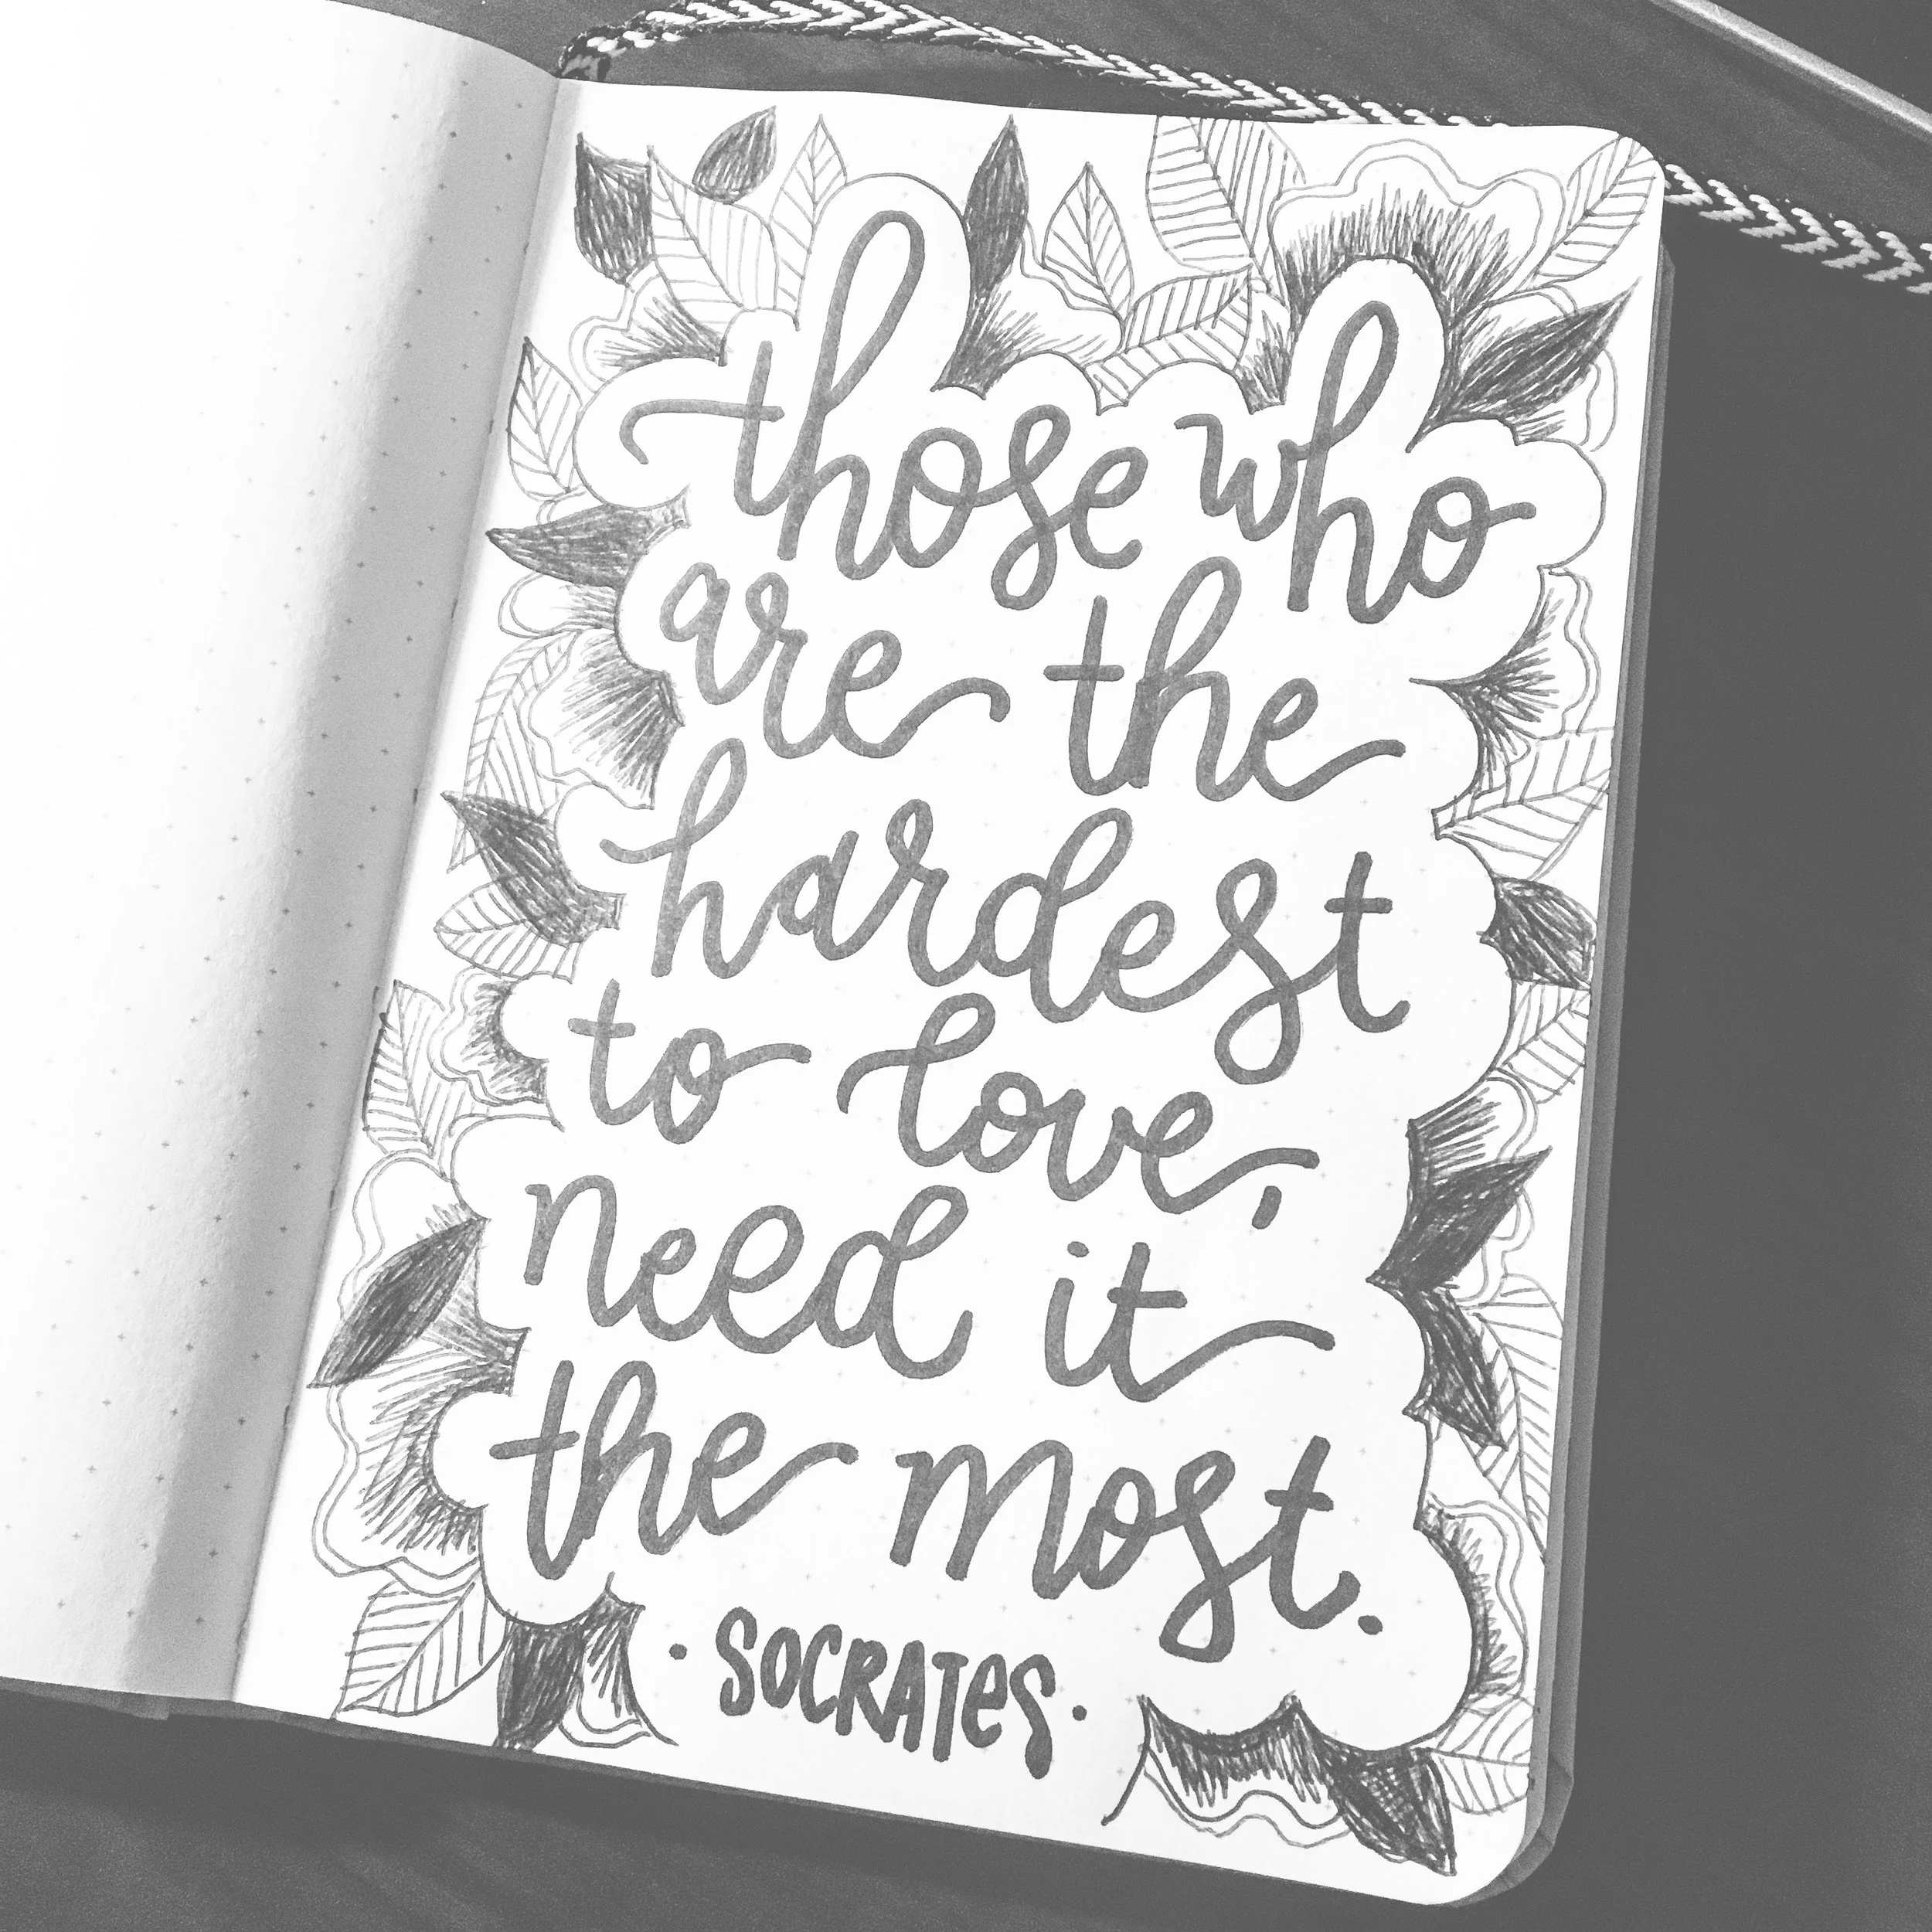 those who
are the
hardest
to love,
need it
the most.
· SOCRATes ·